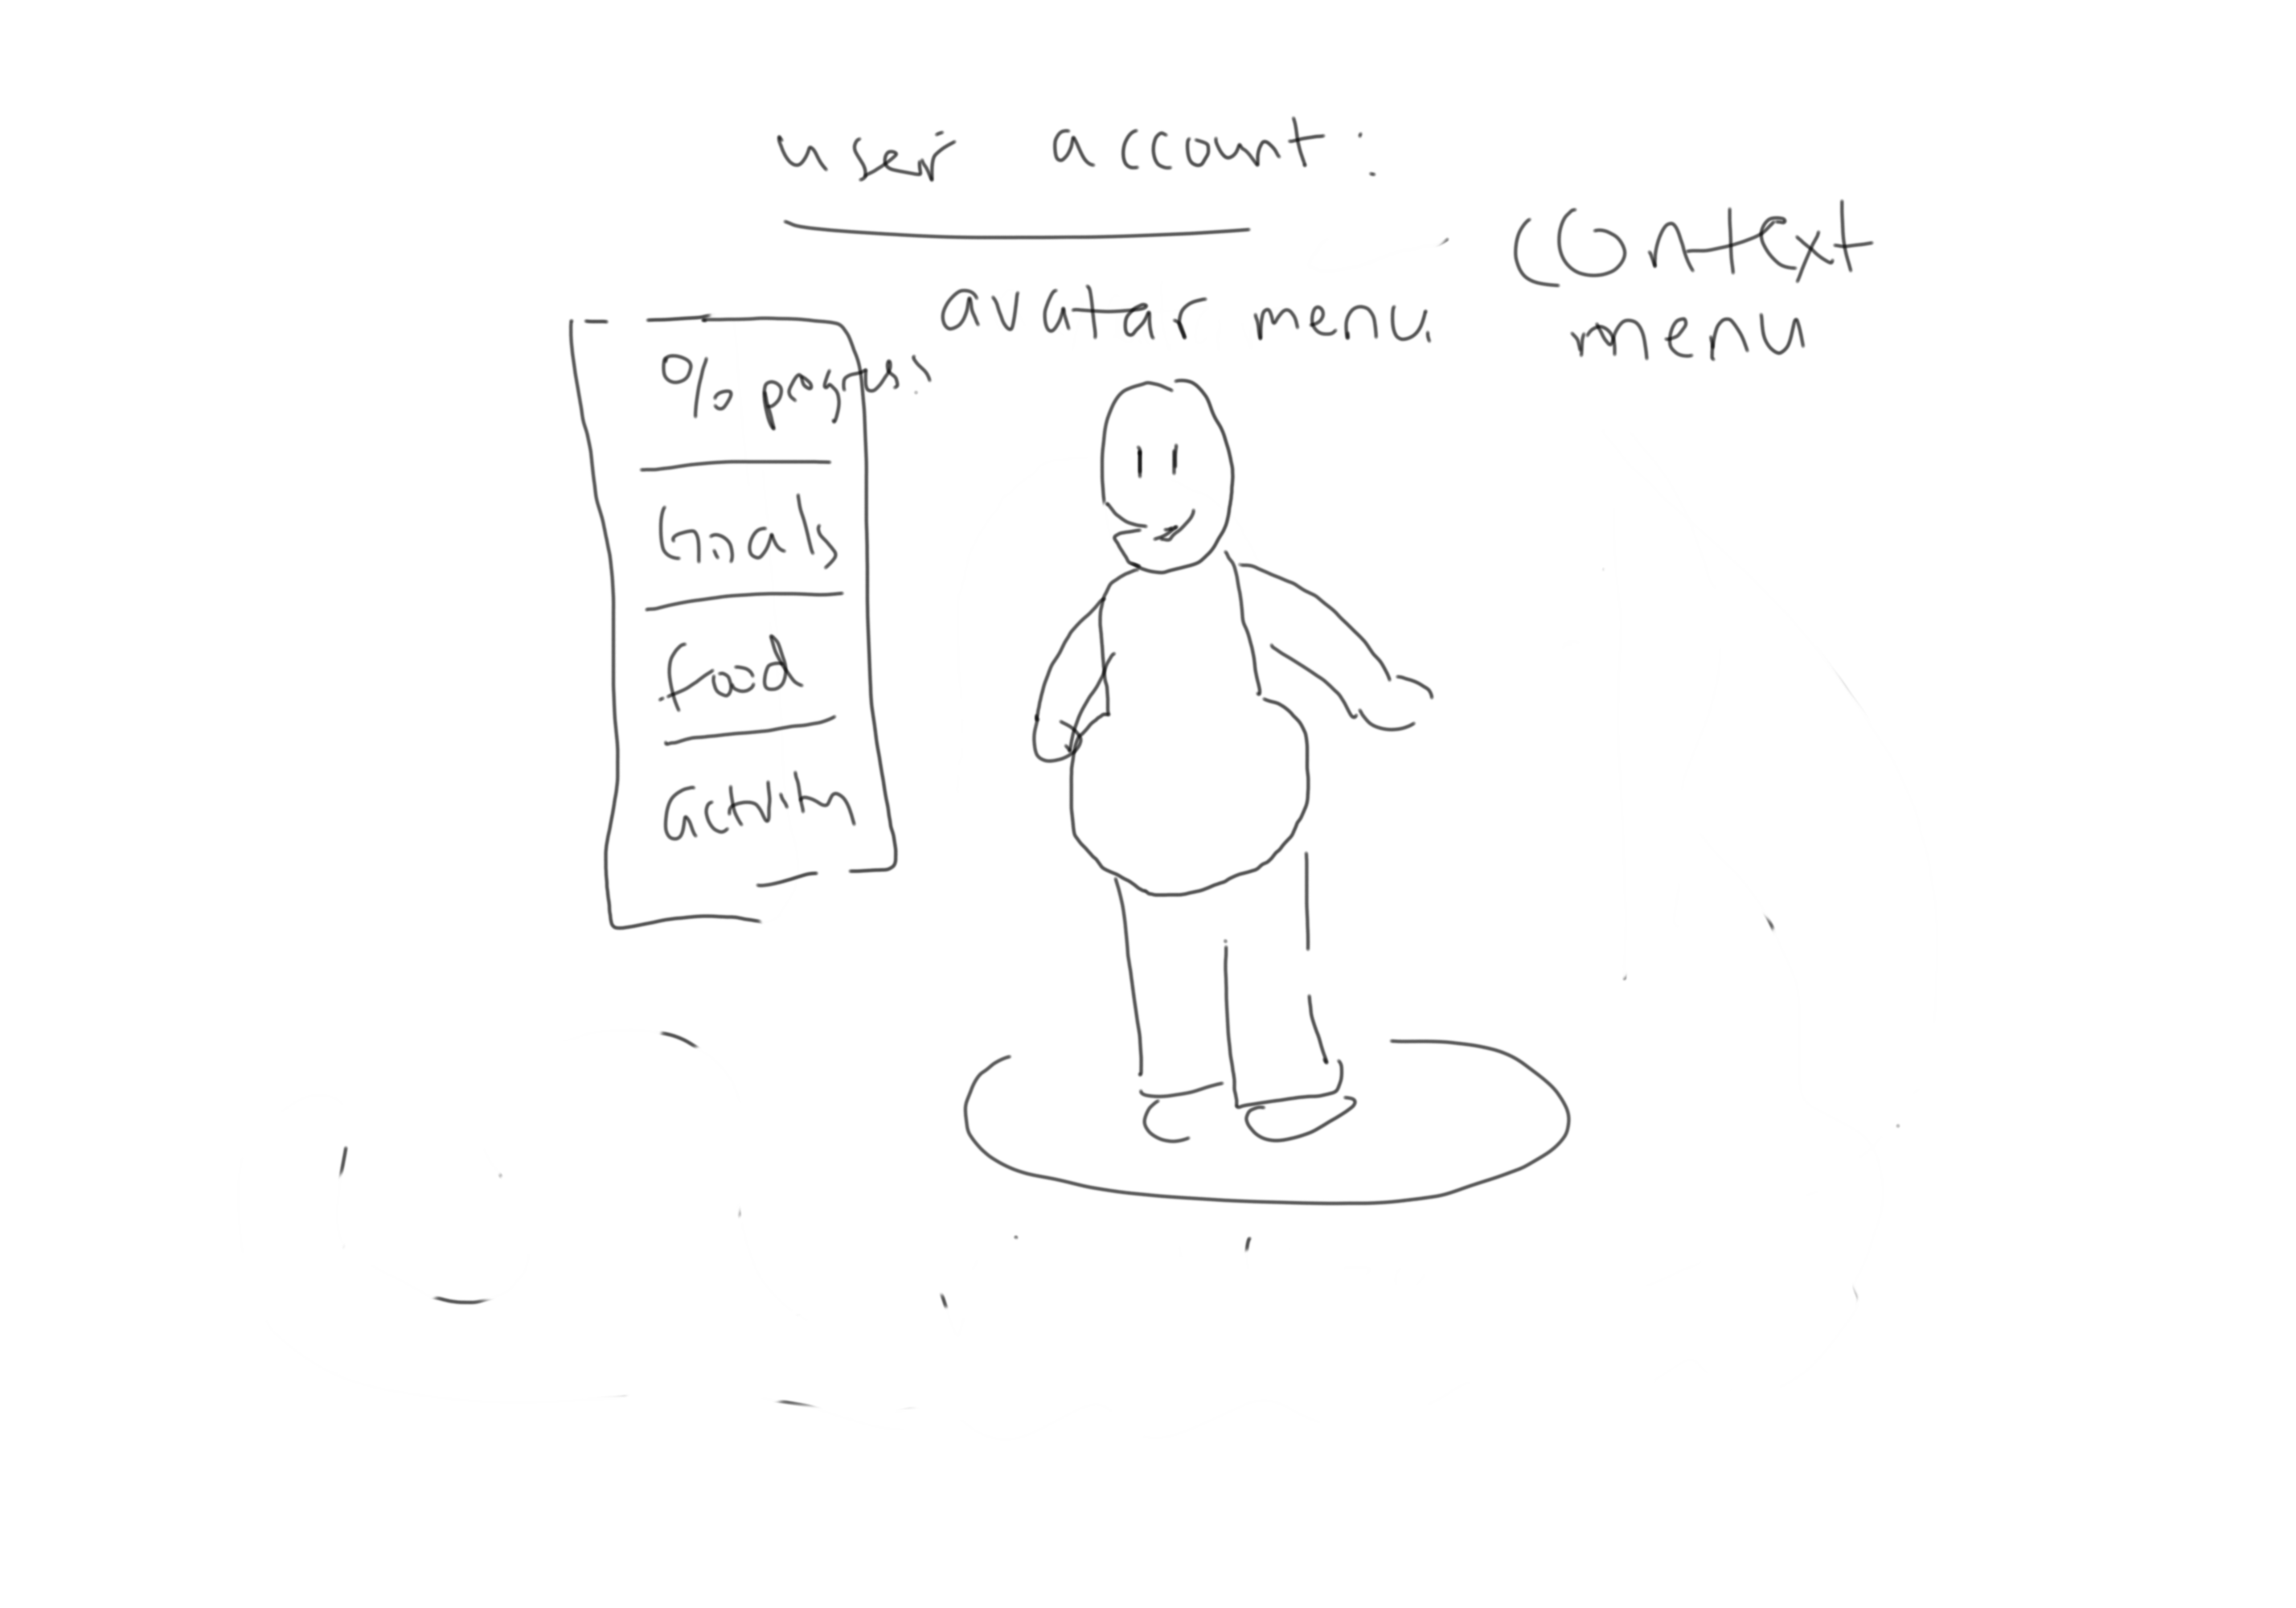 user account:
avatar menu
context
menu
% progress
Goals
food
activity